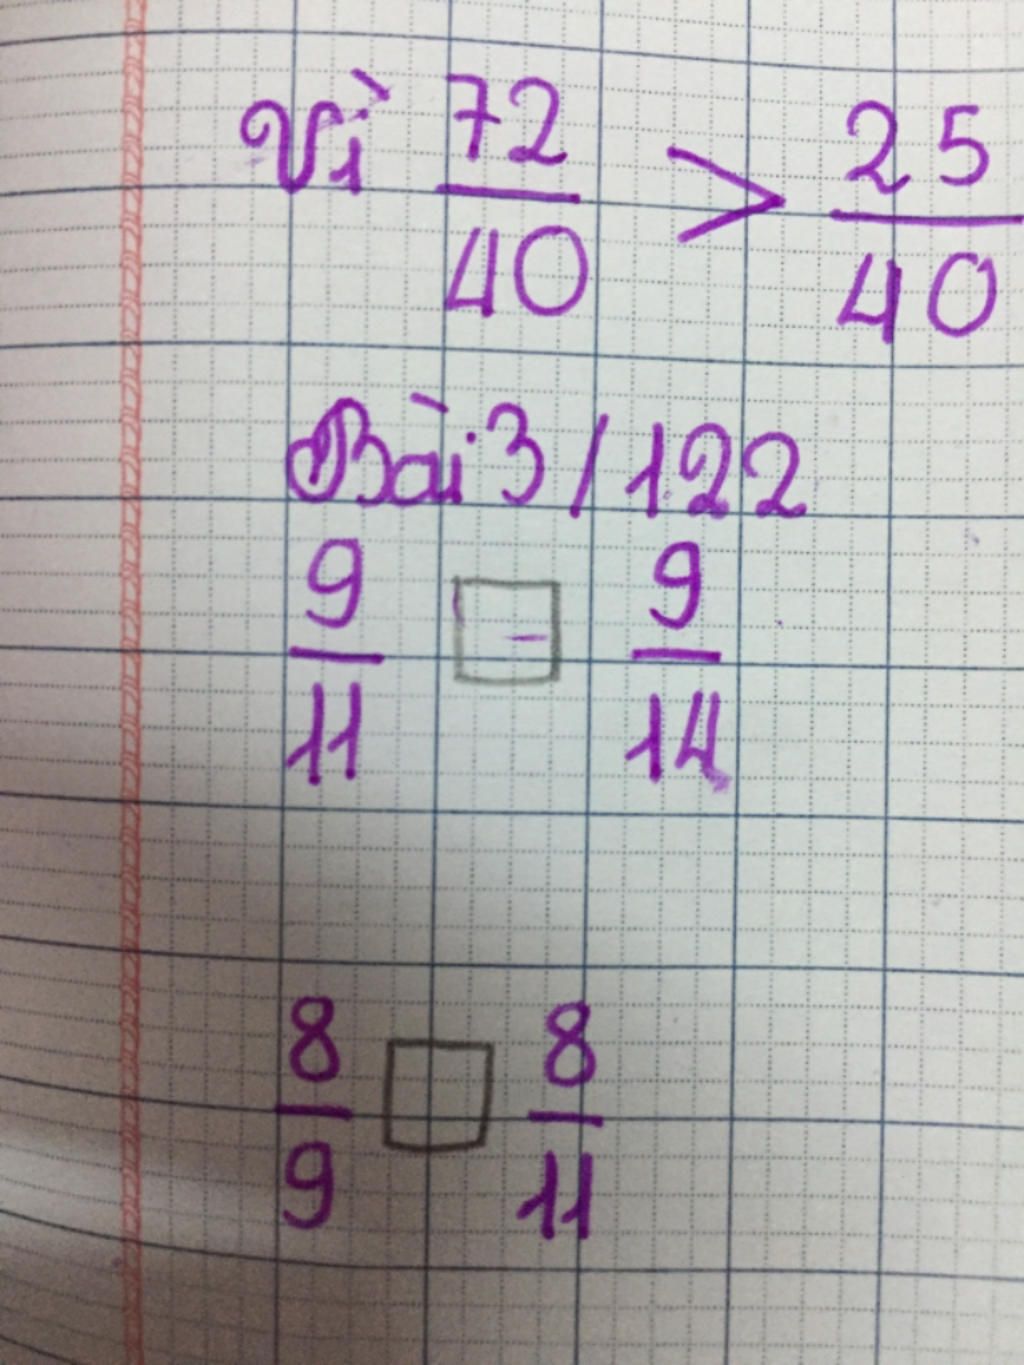 Vì 72/40 > 25/40
Bài 3/122
9/11 □ 9/14
8/9 □ 8/11